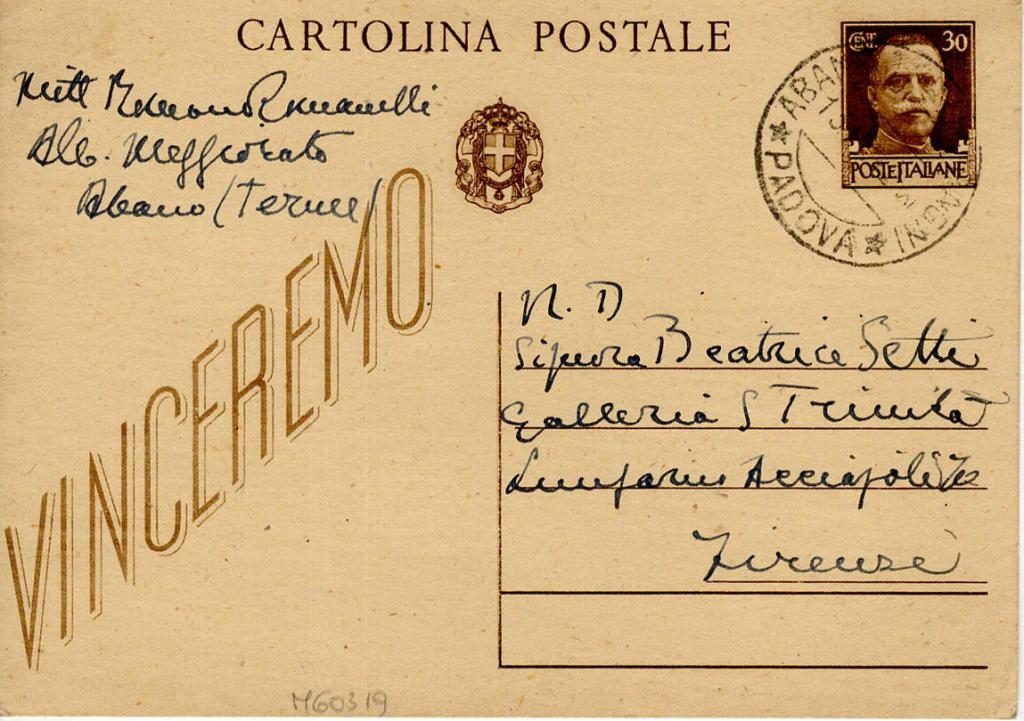 CARTOLINA POSTALE
Mitt Romano Romanelli
Alb. Meggiorato
Abano (Terme)
CENT. 30
POSTE ITALIANE
ABANO
PADOVA
VINCEREMO
N. D
Signora Beatrice Setti
Galleria S Trinità
Lungarno Acciajoli
Firenze
M60319